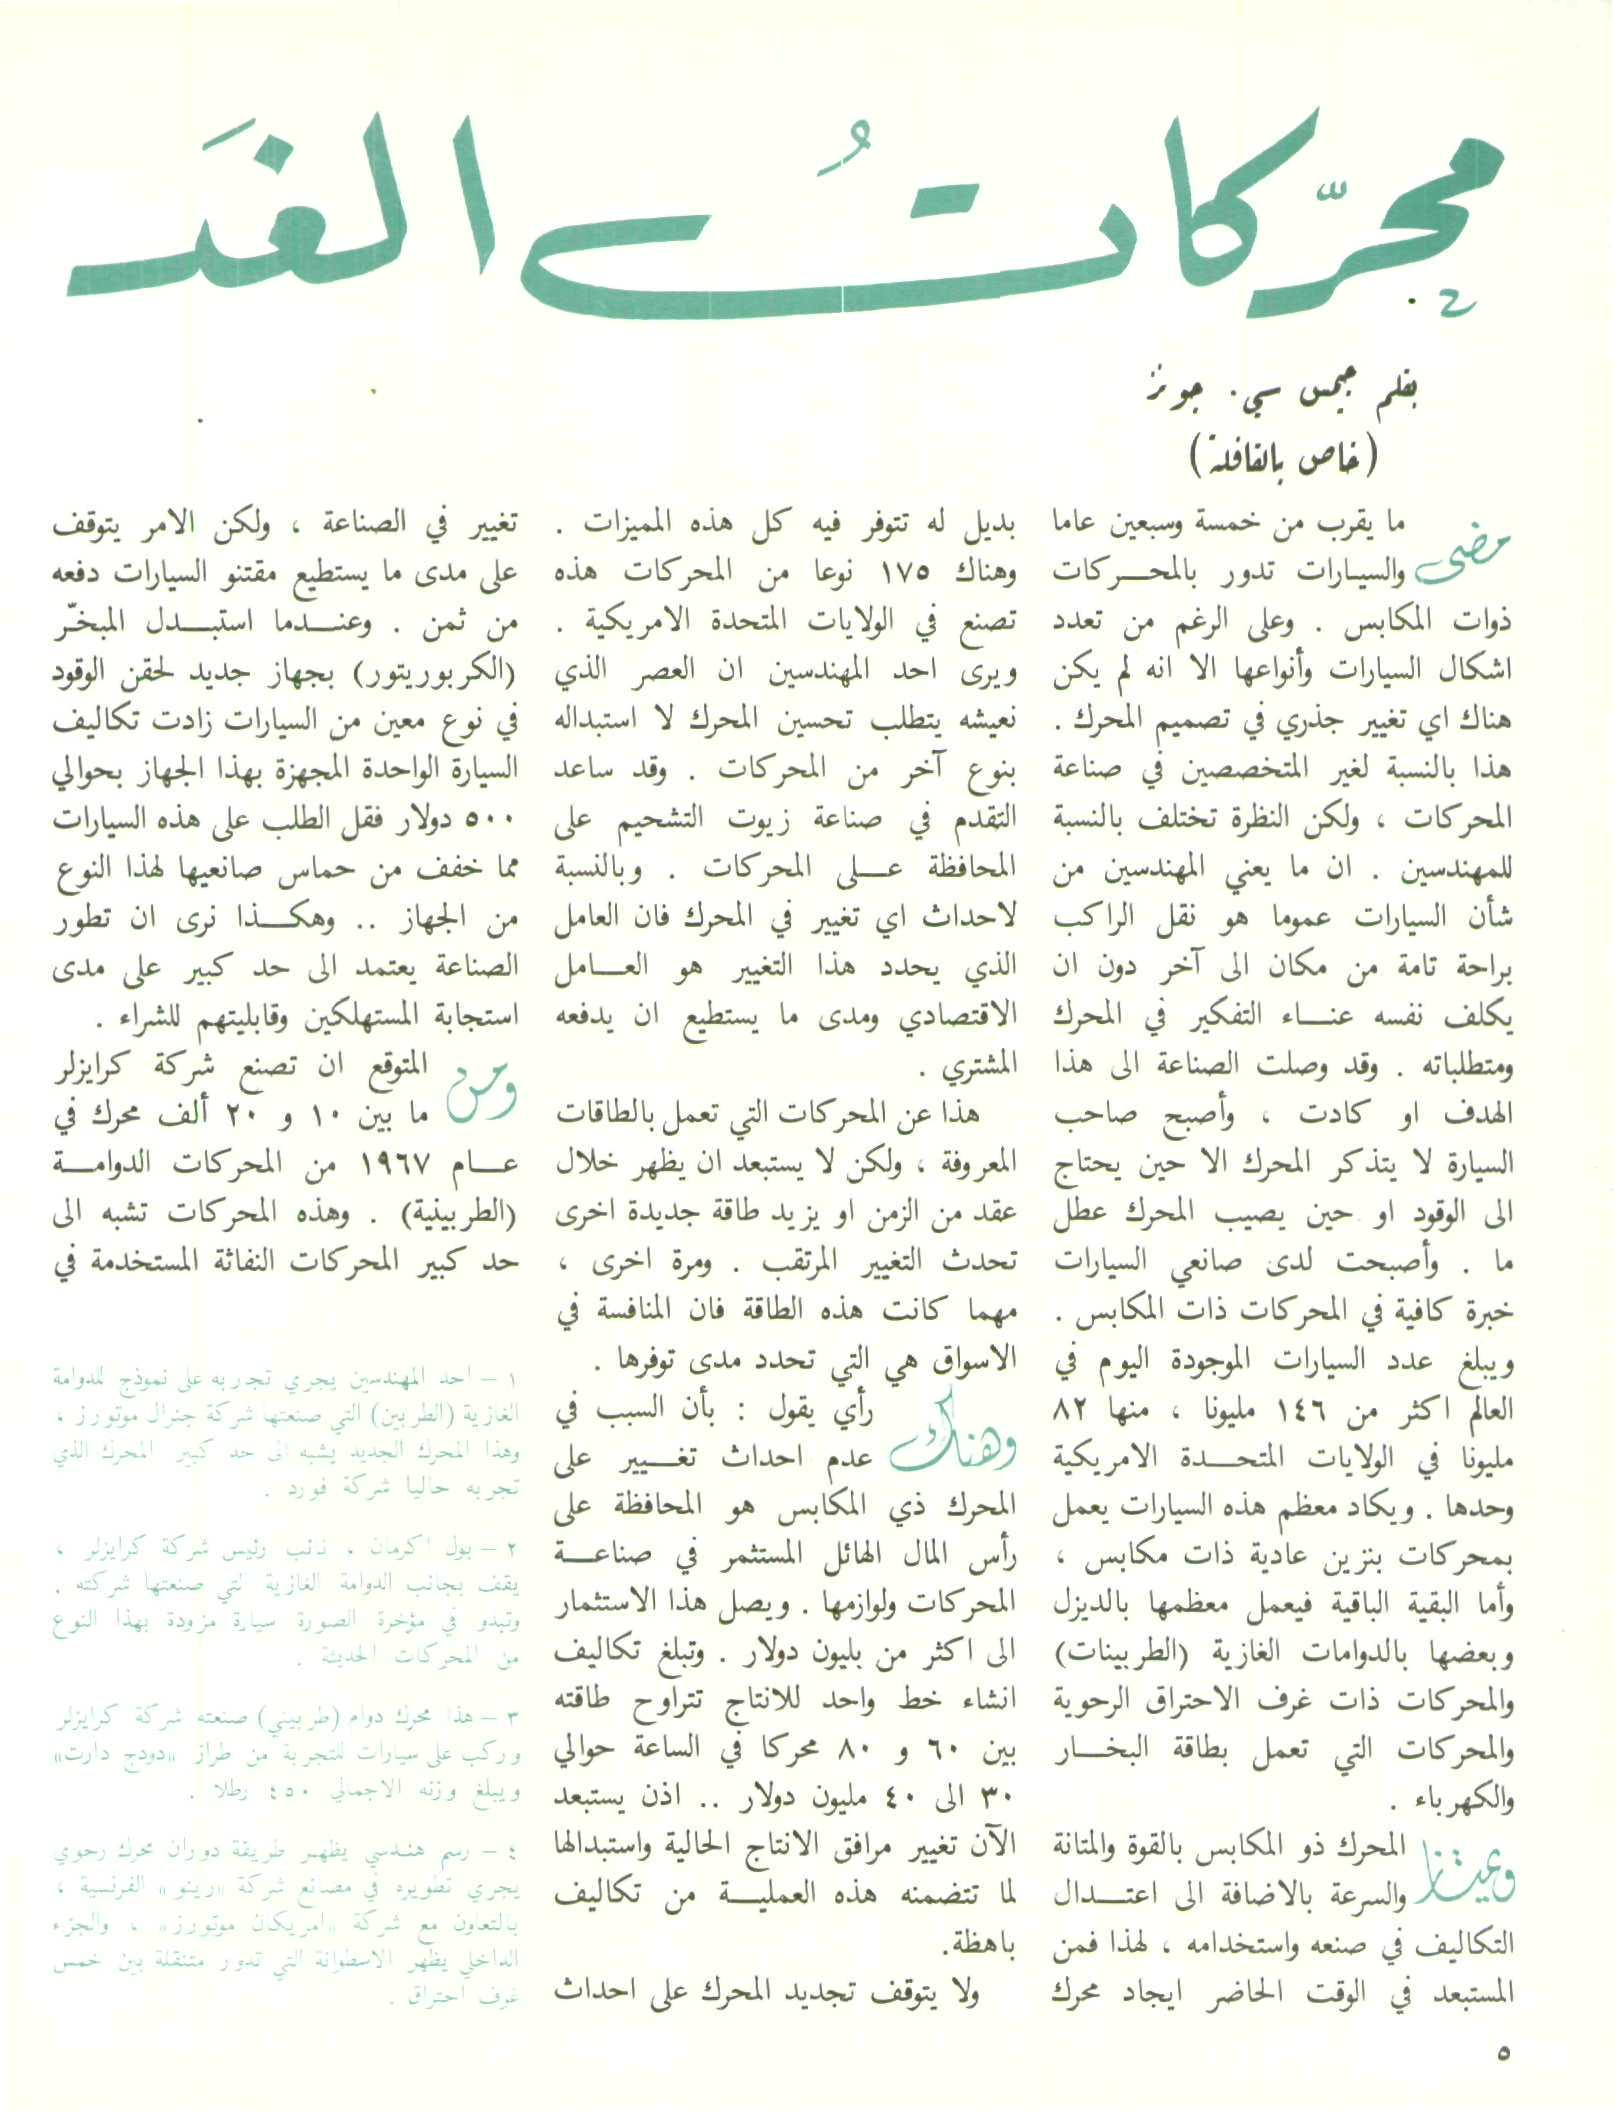 محرّكاتُ الغَد
بقلم جيمس سي. جونز
(خاص بالقافلة)
مضى ما يقرب من خمسة وسبعين عاما
والسيارات تدور بالمحركات
ذوات المكابس . وعلى الرغم من تعدد
اشكال السيارات وأنواعها الا انه لم يكن
هناك اي تغيير جذري في تصميم المحرك .
هذا بالنسبة لغير المتخصصين في صناعة
المحركات ، ولكن النظرة تختلف بالنسبة
للمهندسين . ان ما يعني المهندسين من
شأن السيارات عموما هو نقل الراكب
براحة تامة من مكان الى آخر دون ان
يكلف نفسه عناء التفكير في المحرك
ومتطلباته . وقد وصلت الصناعة الى هذا
الهدف او كادت ، وأصبح صاحب
السيارة لا يتذكر المحرك الا حين يحتاج
الى الوقود او حين يصيب المحرك عطل
ما . وأصبحت لدى صانعي السيارات
خبرة كافية في المحركات ذات المكابس .
ويبلغ عدد السيارات الموجودة اليوم في
العالم اكثر من ١٤٦ مليونا ، منها ٨٢
مليونا في الولايات المتحدة الامريكية
وحدها . ويكاد معظم هذه السيارات يعمل
بمحركات بنزين عادية ذات مكابس ،
وأما البقية الباقية فيعمل معظمها بالديزل
وبعضها بالدوامات الغازية (الطربينات)
والمحركات ذات غرف الاحتراق الرحوية
والمحركات التي تعمل بطاقة البخار
والكهرباء .
ويمتاز المحرك ذو المكابس بالقوة والمتانة
والسرعة بالاضافة الى اعتدال
التكاليف في صنعه واستخدامه ، لهذا فمن
المستبعد في الوقت الحاضر ايجاد محرك
بديل له تتوفر فيه كل هذه المميزات .
وهناك ١٧٥ نوعا من المحركات هذه
تصنع في الولايات المتحدة الامريكية .
ويرى احد المهندسين ان العصر الذي
نعيشه يتطلب تحسين المحرك لا استبداله
بنوع آخر من المحركات . وقد ساعد
التقدم في صناعة زيوت التشحيم على
المحافظة على المحركات . وبالنسبة
لاحداث اي تغيير في المحرك فان العامل
الذي يحدد هذا التغيير هو العامل
الاقتصادي ومدى ما يستطيع ان يدفعه
المشتري .
هذا عن المحركات التي تعمل بالطاقات
المعروفة ، ولكن لا يستبعد ان يظهر خلال
عقد من الزمن او يزيد طاقة جديدة اخرى
تحدث التغيير المرتقب . ومرة اخرى ،
مهما كانت هذه الطاقة فان المنافسة في
الاسواق هي التي تحدد مدى توفرها .
وهناك رأي يقول : بأن السبب في
عدم احداث تغيير على
المحرك ذي المكابس هو المحافظة على
رأس المال الهائل المستثمر في صناعة
المحركات ولوازمها . ويصل هذا الاستثمار
الى اكثر من بليون دولار . وتبلغ تكاليف
انشاء خط واحد للانتاج تتراوح طاقته
بين ٦٠ و ٨٠ محركا في الساعة حوالي
٣٠ الى ٤٠ مليون دولار .. اذن يستبعد
الآن تغيير مرافق الانتاج الحالية واستبدالها
لما تتضمنه هذه العملية من تكاليف
باهظة.
ولا يتوقف تجديد المحرك على احداث
تغيير في الصناعة ، ولكن الامر يتوقف
على مدى ما يستطيع مقتنو السيارات دفعه
من ثمن . وعندما استبدل المبخّر
(الكربوريتور) بجهاز جديد لحقن الوقود
في نوع معين من السيارات زادت تكاليف
السيارة الواحدة المجهزة بهذا الجهاز بحوالي
٥٠٠ دولار فقل الطلب على هذه السيارات
مما خفف من حماس صانعيها لهذا النوع
من الجهاز .. وهكذا نرى ان تطور
الصناعة يعتمد الى حد كبير على مدى
استجابة المستهلكين وقابليتهم للشراء .
ومن المتوقع ان تصنع شركة كرايزلر
ما بين ١٠ و ٢٠ ألف محرك في
عام ١٩٦٧ من المحركات الدوامة
(الطربينية) . وهذه المحركات تشبه الى
حد كبير المحركات النفاثة المستخدمة في
١ - احد المهندسين يجري تجاربه على نموذج للدوامة
الغازية (الطربين) التي صنعتها شركة جنرال موتورز ،
وهذا المحرك الجديد يشبه الى حد كبير المحرك الذي
تجربه حاليا شركة فورد .
٢ - بول اكرمان ، نائب رئيس شركة كرايزلر ،
يقف بجانب الدوامة الغازية التي صنعتها شركته .
وتبدو في مؤخرة الصورة سيارة مزودة بهذا النوع
من المحركات الحديثة .
٣ - هذا محرك دوام (طربيني) صنعته شركة كرايزلر
وركب على سيارات للتجربة من طراز «دودج دارت»
ويبلغ وزنه الاجمالي ٤٥٠ رطلا .
٤ - رسم هندسي يظهر طريقة دوران محرك رحوي
يجري تطويره في مصانع شركة «رينو» الفرنسية ،
بالتعاون مع شركة «امريكان موتورز» ، والجزء
الداخلي يظهر الاسطوانة التي تدور متنقلة بين خمس
غرف احتراق .
٥